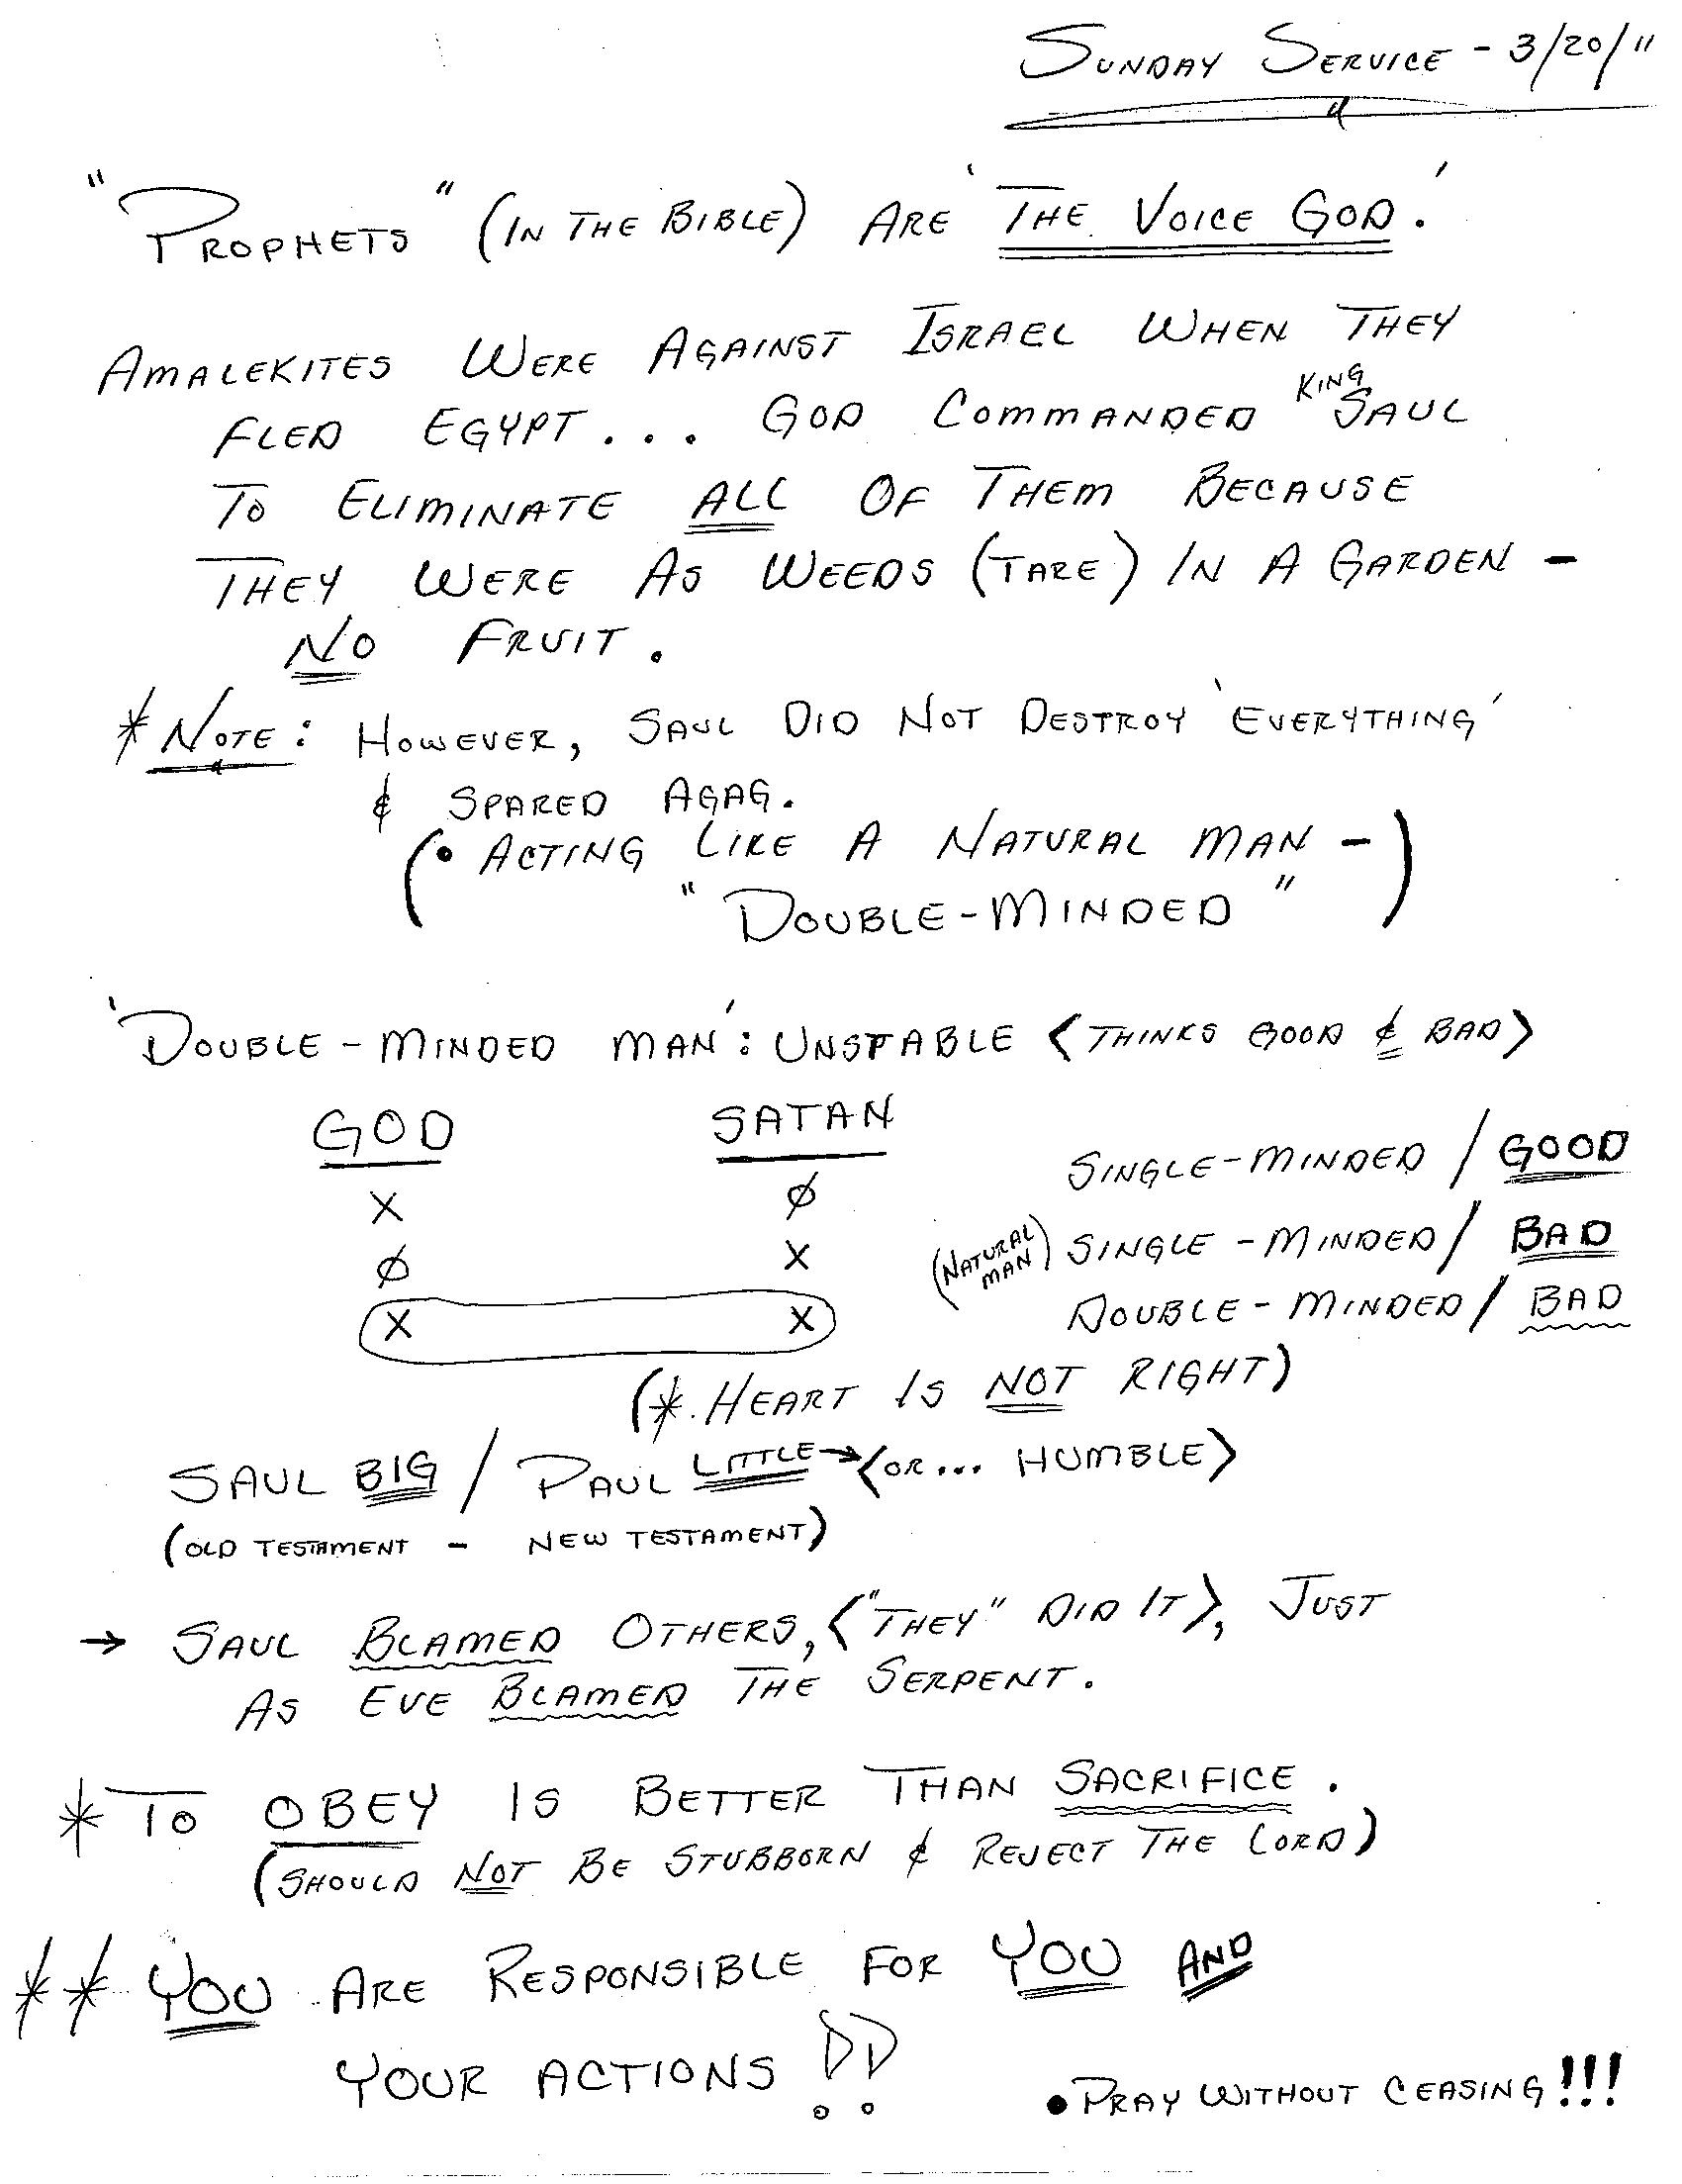 SUNDAY SERVICE - 3/20/11
"PROPHETS" (IN THE BIBLE) ARE 'THE VOICE GOD.'
AMALEKITES WERE AGAINST ISRAEL WHEN THEY
FLED EGYPT... GOD COMMANDED KING SAUL
TO ELIMINATE ALL OF THEM BECAUSE
THEY WERE AS WEEDS (TARE) IN A GARDEN -
NO FRUIT.
* NOTE: HOWEVER, SAUL DID NOT DESTROY 'EVERYTHING'
& SPARED AGAG.
(• ACTING LIKE A NATURAL MAN -
"DOUBLE-MINDED")
'DOUBLE-MINDED MAN': UNSTABLE <THINKS GOOD & BAD>
GOD SATAN
X Ø SINGLE-MINDED / GOOD
Ø X (NATURAL MAN) SINGLE-MINDED / BAD
X X DOUBLE-MINDED / BAD
(* HEART IS NOT RIGHT)
SAUL BIG / PAUL LITTLE → <OR... HUMBLE>
(OLD TESTAMENT - NEW TESTAMENT)
→ SAUL BLAMED OTHERS, <"THEY" DID IT>, JUST
AS EVE BLAMED THE SERPENT.
* TO OBEY IS BETTER THAN SACRIFICE.
(SHOULD NOT BE STUBBORN & REJECT THE LORD)
** YOU ARE RESPONSIBLE FOR YOU AND
YOUR ACTIONS!!
• PRAY WITHOUT CEASING!!!